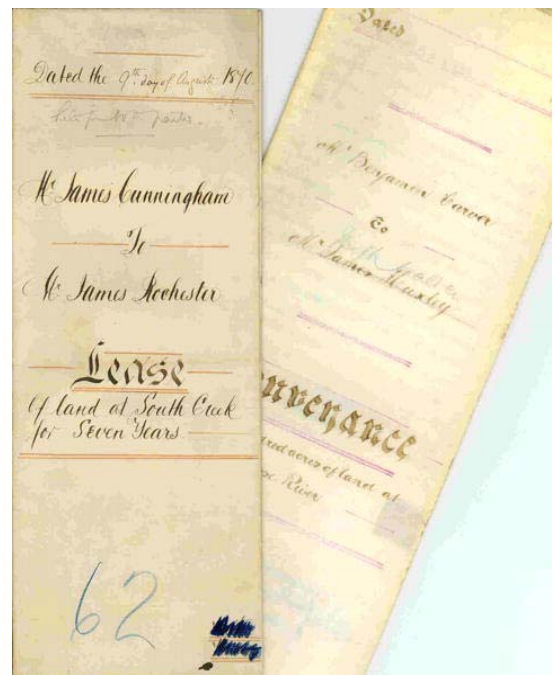 Dated the 9th day of August 1870.
Mr James Cunningham
To
Mr James Rochester
Lease
Of land at South Creek
for Seven Years
62
Dated
Mr Benjamin Carver
to
Mr James Huxley
nveyance
dred acres of land at
River